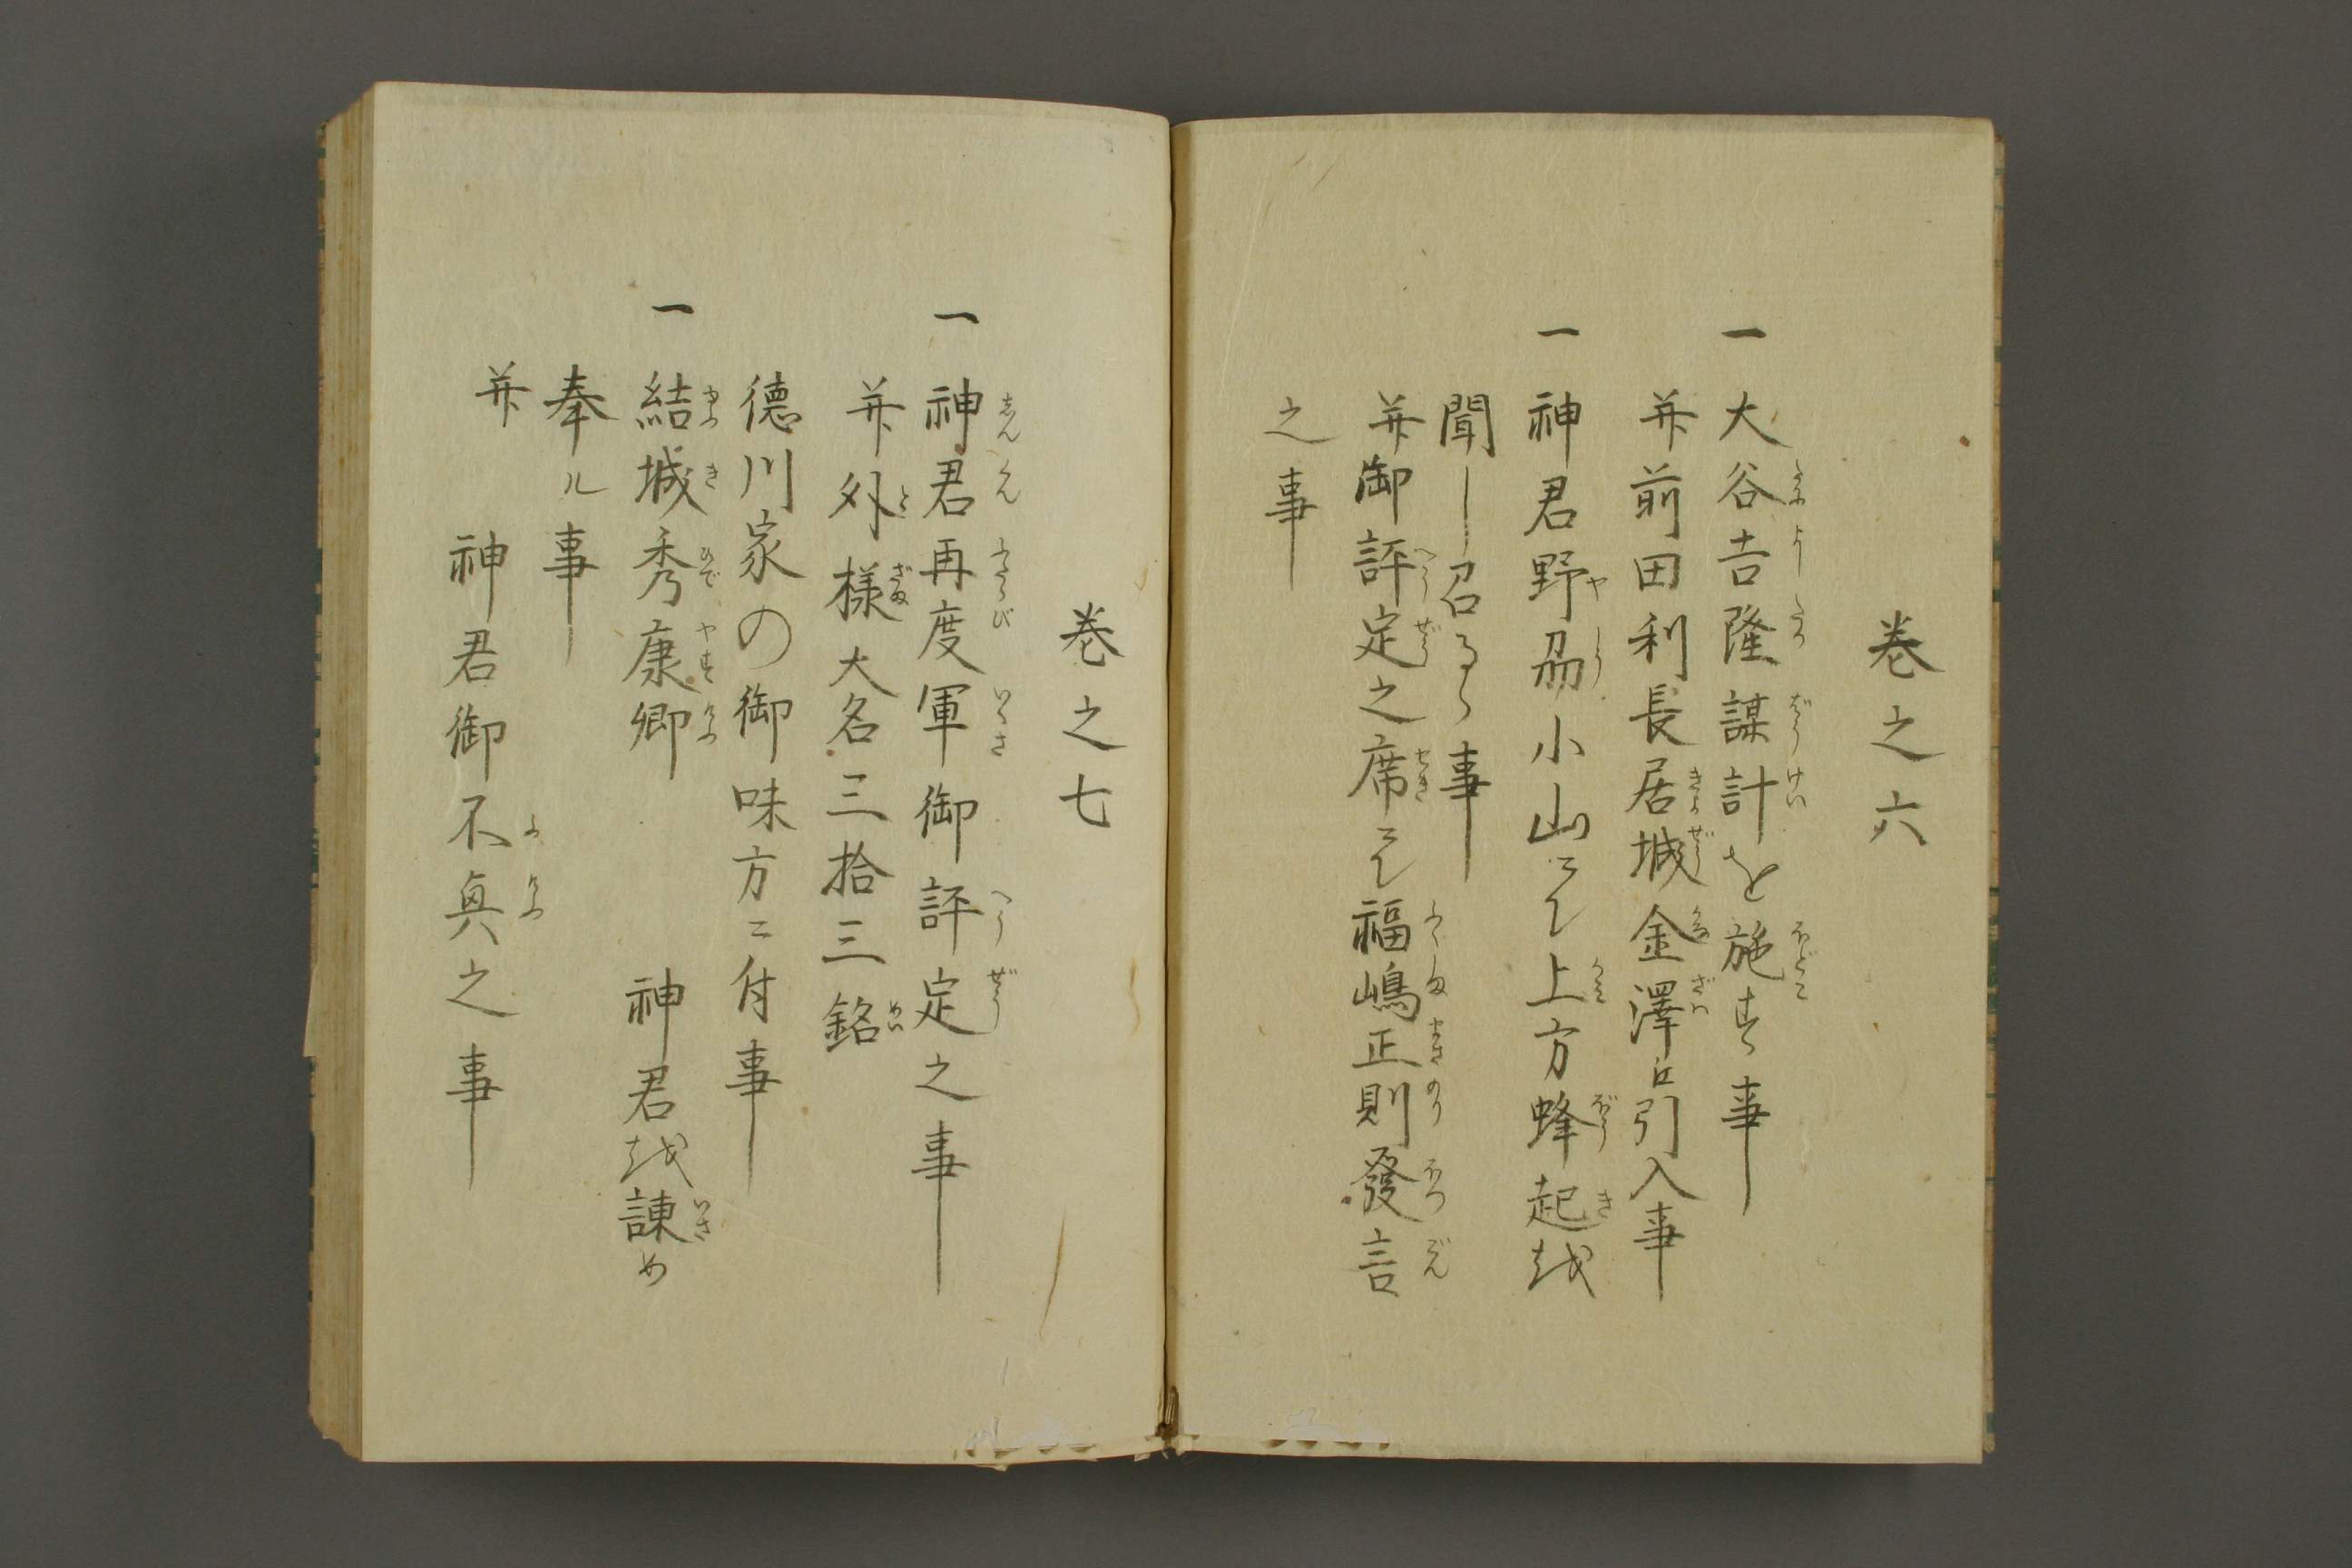 巻之六
一大谷吉隆謀計を施す事
并前田利長居城金澤江引入事
一神君野刕小山にて上方蜂起越
聞し召るゝ事
并御評定之席にて福嶋正則發言
之事
巻之七
一神君再度軍御評定之事
并外様大名三拾三銘
徳川家の御味方ニ付事
一結城秀康卿 神君越諌め
奉ル事
并 神君御不興之事